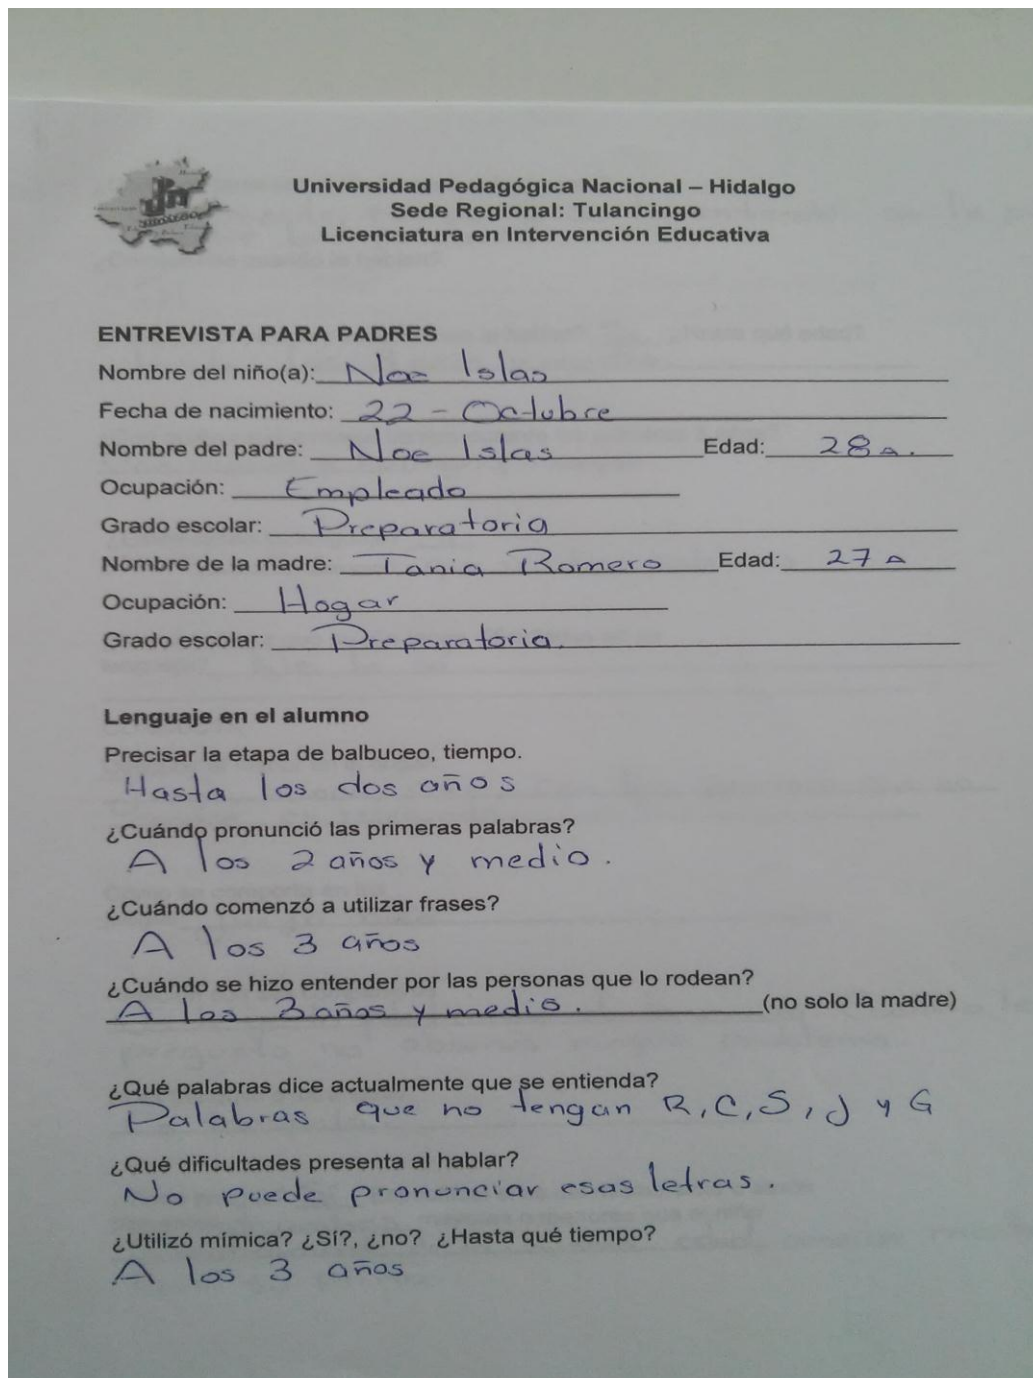 Universidad Pedagógica Nacional – Hidalgo
Sede Regional: Tulancingo
Licenciatura en Intervención Educativa
ENTREVISTA PARA PADRES
Nombre del niño(a): Noe Islas
Fecha de nacimiento: 22 - Octubre
Nombre del padre: Noe Islas Edad: 28 a.
Ocupación: Empleado
Grado escolar: Preparatoria
Nombre de la madre: Tania Romero Edad: 27 a
Ocupación: Hogar
Grado escolar: Preparatoria.
Lenguaje en el alumno
Precisar la etapa de balbuceo, tiempo.
Hasta los dos años
¿Cuándo pronunció las primeras palabras?
A los 2 años y medio.
¿Cuándo comenzó a utilizar frases?
A los 3 años
¿Cuándo se hizo entender por las personas que lo rodean?
A los 3 años y medio. (no solo la madre)
¿Qué palabras dice actualmente que se entienda?
Palabras que no tengan R, C, S, J y G
¿Qué dificultades presenta al hablar?
No puede pronunciar esas letras.
¿Utilizó mímica? ¿Sí?, ¿no? ¿Hasta qué tiempo?
A los 3 años